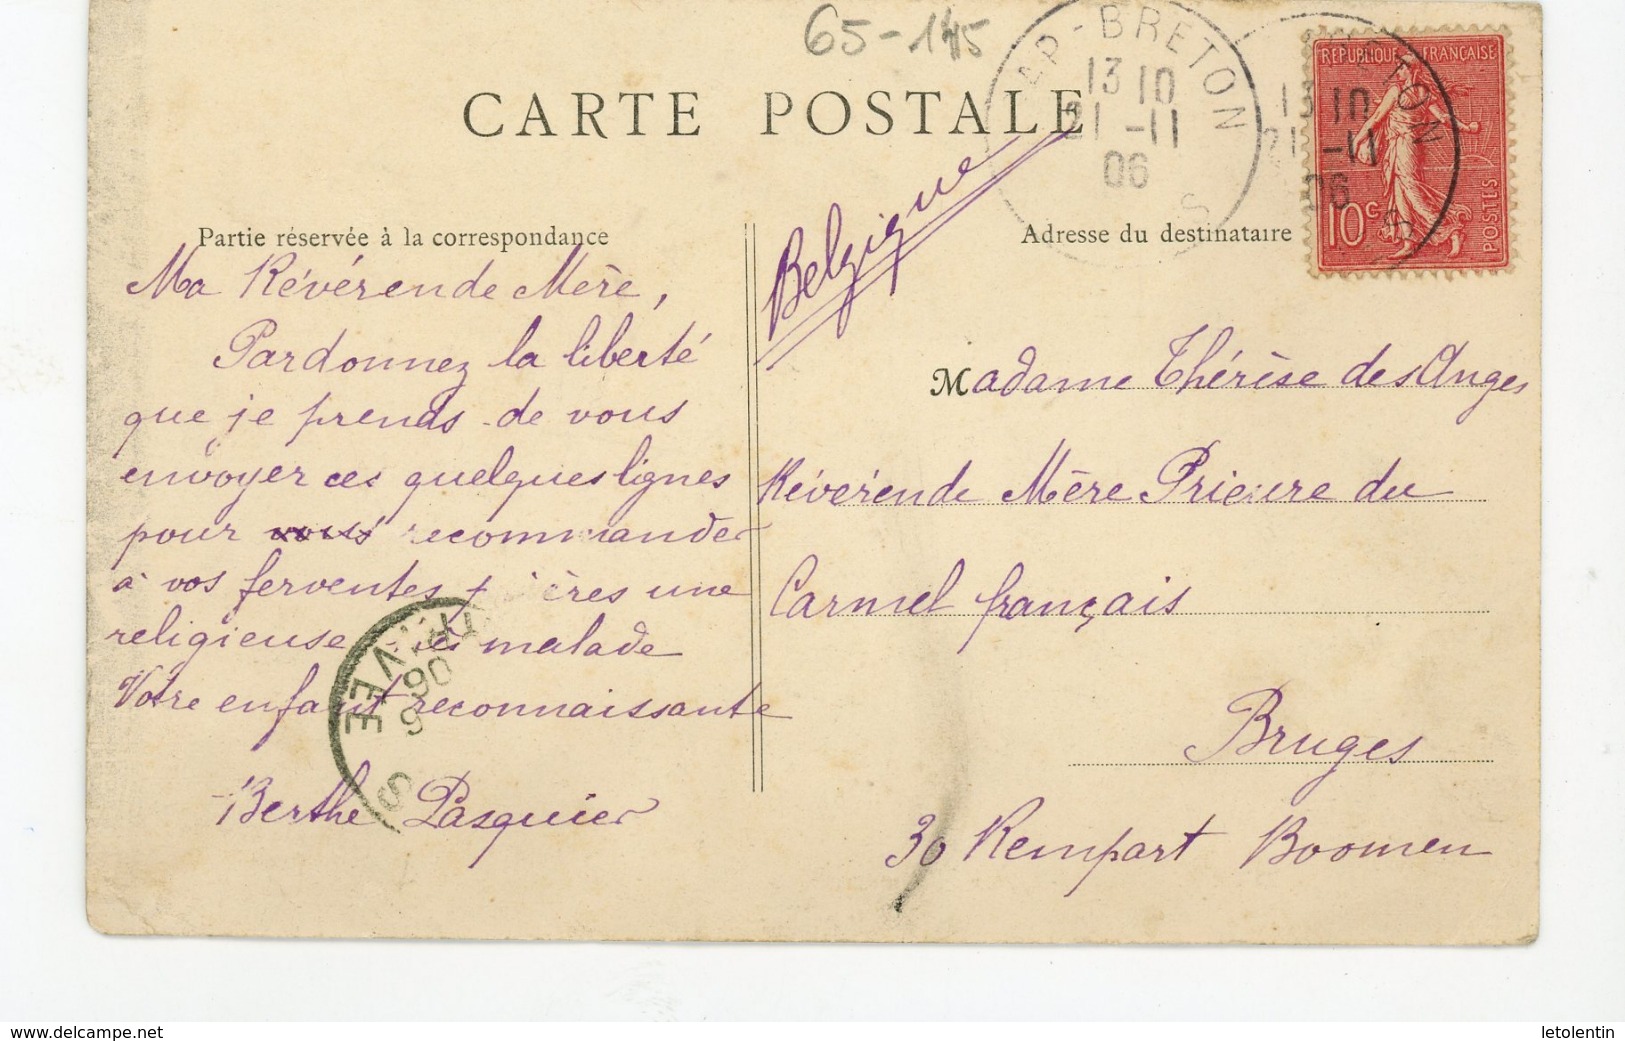 65-145
CARTE POSTALE
AP-BRETON
13 10
21 -11
06
S
ETON
13 10
21 -11
06
S
REPUBLIQUE FRANÇAISE
10c
POSTES
Partie réservée à la correspondance
Adresse du destinataire
Belgique
Ma Révérende Mère,
Pardonnez la liberté
que je prends de vous
envoyer ces quelques lignes
pour vous recommander
à vos ferventes ères une
religieuse malade
Votre enfant reconnaissante
Berthe Pasquier
Madame Thérèse des Anges
Révérende Mère Prieure du
Carmel français
Bruges
30 Rempart Boomen
06
S
www.delcampe.net
letolentin